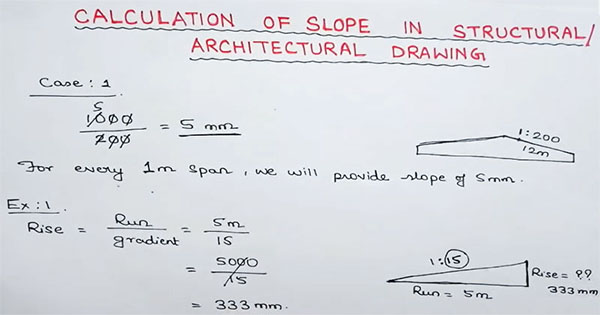 CALCULATION OF SLOPE IN STRUCTURAL/
ARCHITECTURAL DRAWING
Case : 1
5
1000
200
= 5 mm
1:200
12m
For every 1m span, we will provide slope of 5mm.
Ex:1.
Rise = Run / gradient = 5m / 15
= 5000 / 15
= 333 mm.
1:15
Rise = ??
333 mm
Run = 5m